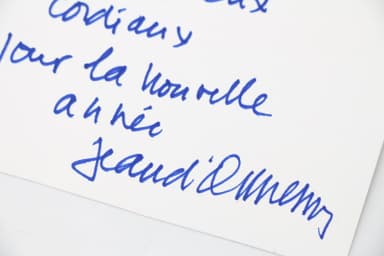 cordiaux
pour la nouvelle
année
Jean d'Ormesson